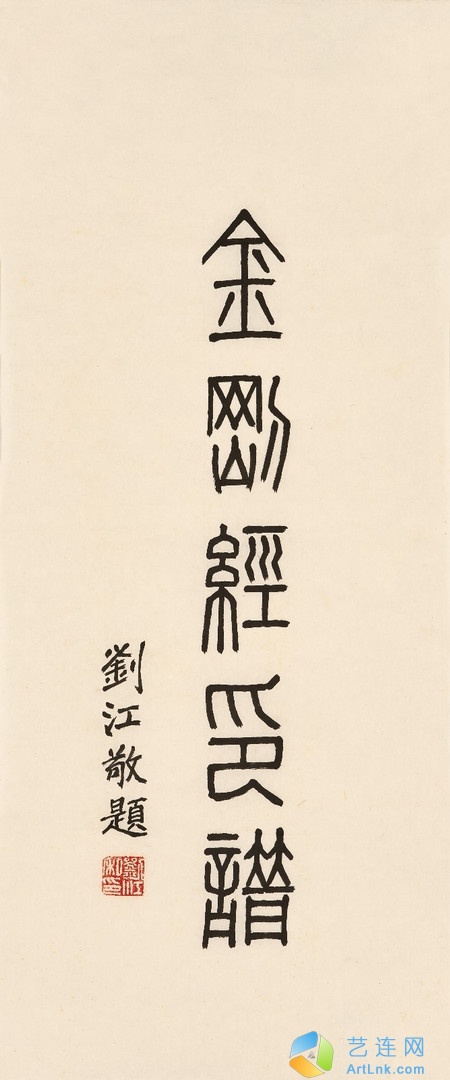 金剛經印譜
劉江敬題
劉江私印
艺连网
ArtLnk.com